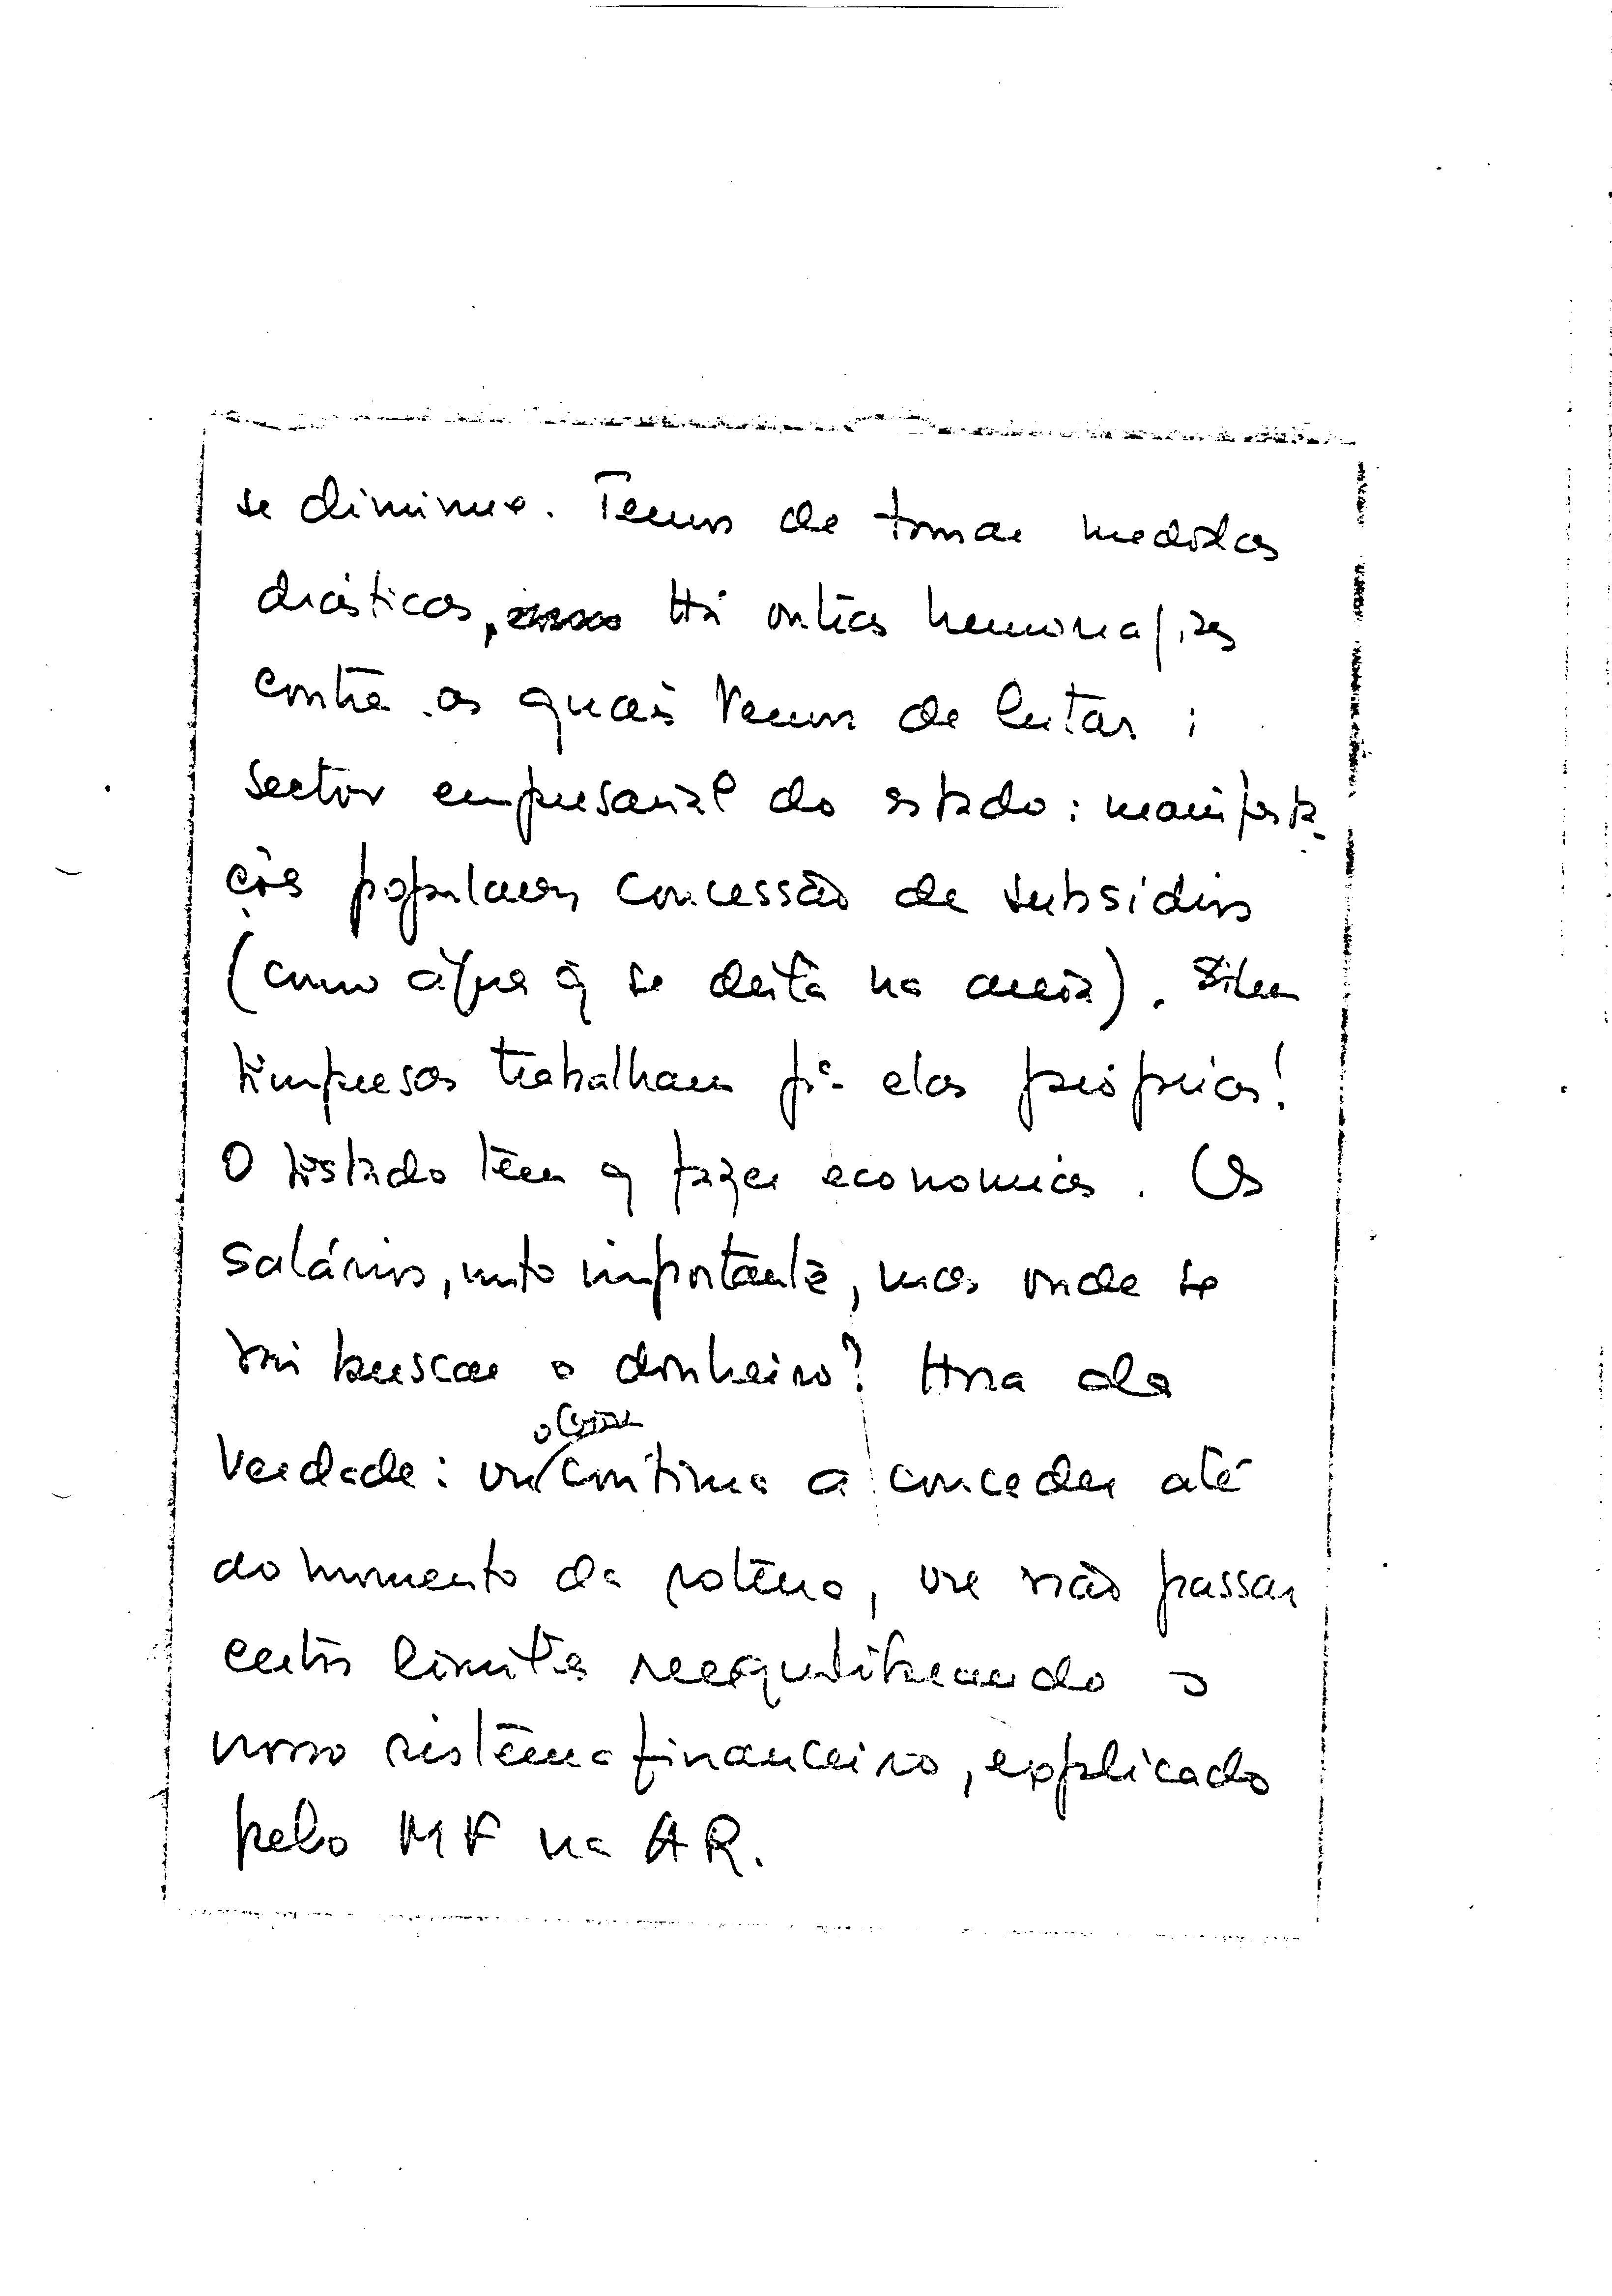 se diminue. Temos de tomar medidas
drásticas, Há outras hemorragias
contra as quais temos de lutar:
sector empresarial do estado: manifesta-
ções populares concessão de subsídios
(como água q se deita na areia).
Empresas trabalham pª elas próprias!
O Estado têm q fazer economias. Os
salários, mto importante, mas onde se
vai buscar o dinheiro? Hora da
verdade: ou continua a conceder até
ao momento da rotura, ou não passar
certos limites reequilibrando o
nosso sistema financeiro, explicado
pelo MF na AR.